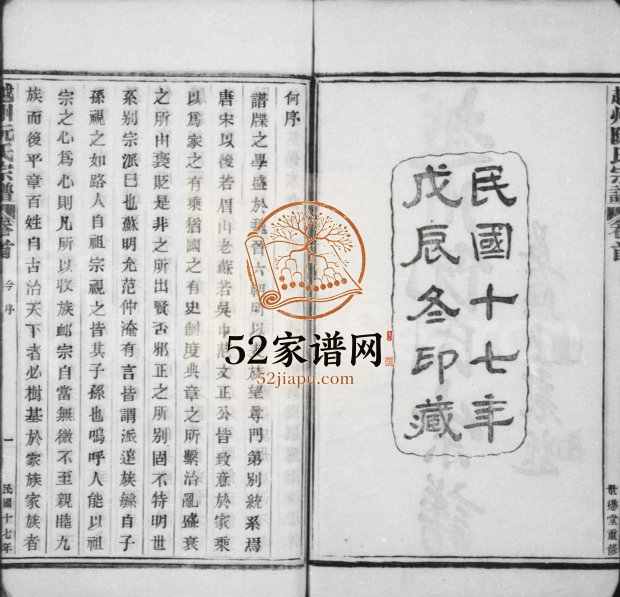 越州阮氏宗譜
卷首
世
堂重修
民國十七年
戊辰冬印藏
何序
譜牒之學盛於
晉六朝所以
族望尊門第別統系焉
唐宋以後若眉山老蘇若吳中范文正公皆致意於家乘
以爲家之有乘猶國之有史制度典章之所繫治亂盛衰
之所由褒貶是非之所出賢否邪正之所別固不特明世
系別宗派已也蘇明允范仲淹有言皆謂派遠族繇自子
孫視之如路人自祖宗視之皆其子孫也嗚呼人能以祖
宗之心爲心則凡所以收族卹宗自當無微不至親睦九
族而後平章百姓自古治天下者必樹基於家族家族者
越州阮氏宗譜
卷首
今序
一
民國十七年
52家谱网
52jiapu.com